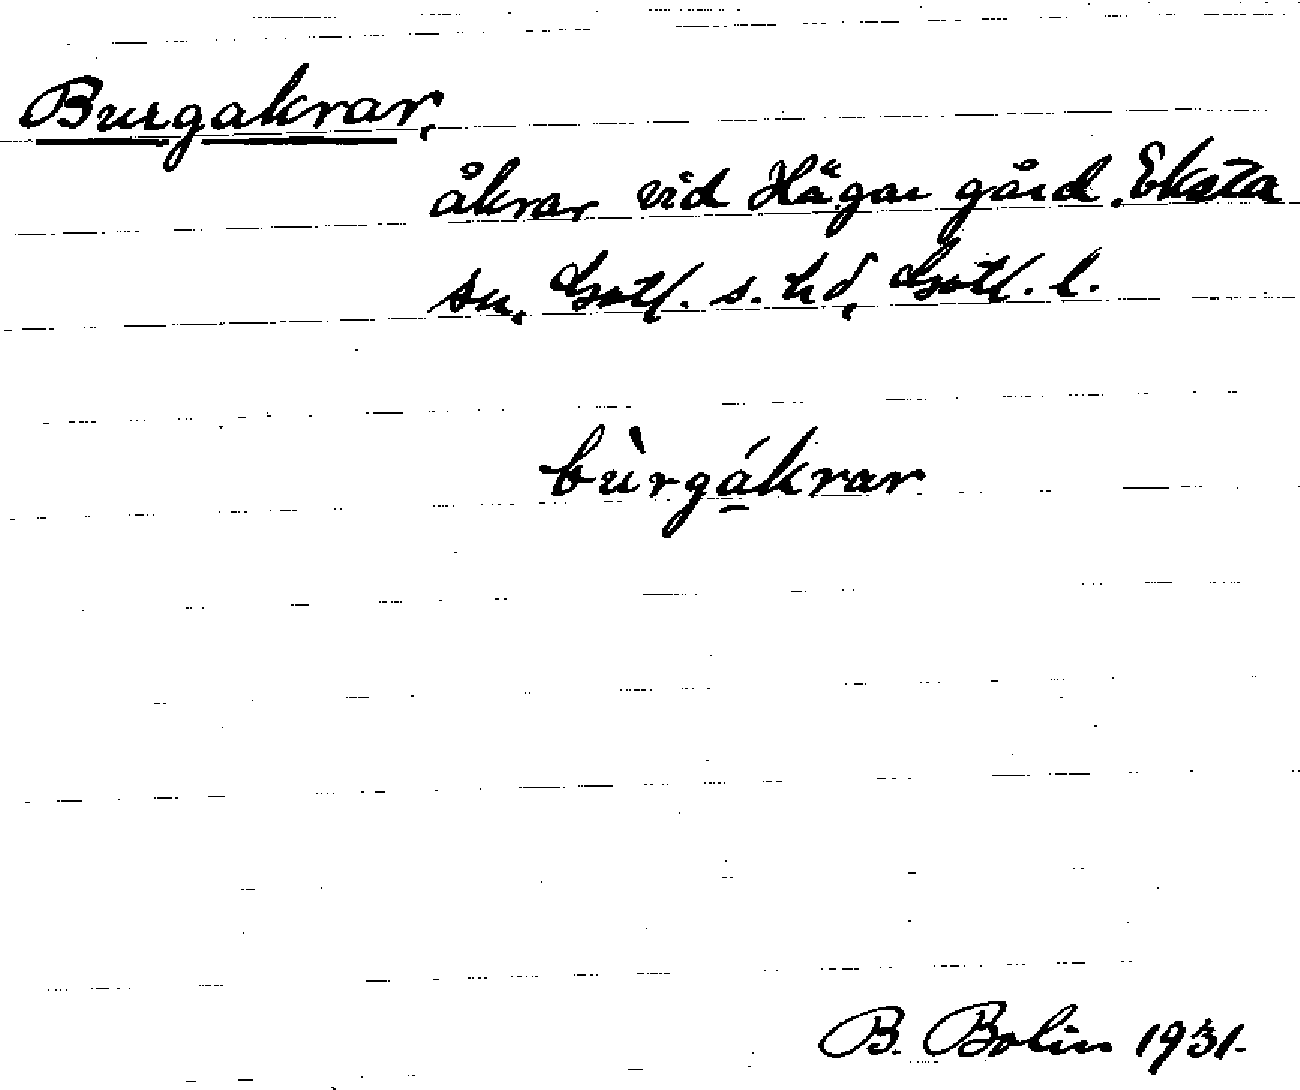 Burgakrar,
åkrar vid Hägur gård, Eksta
sn, Gotl. s. hd, Gotl. l.
bùrgá̱krar
B. Bolin 1931.